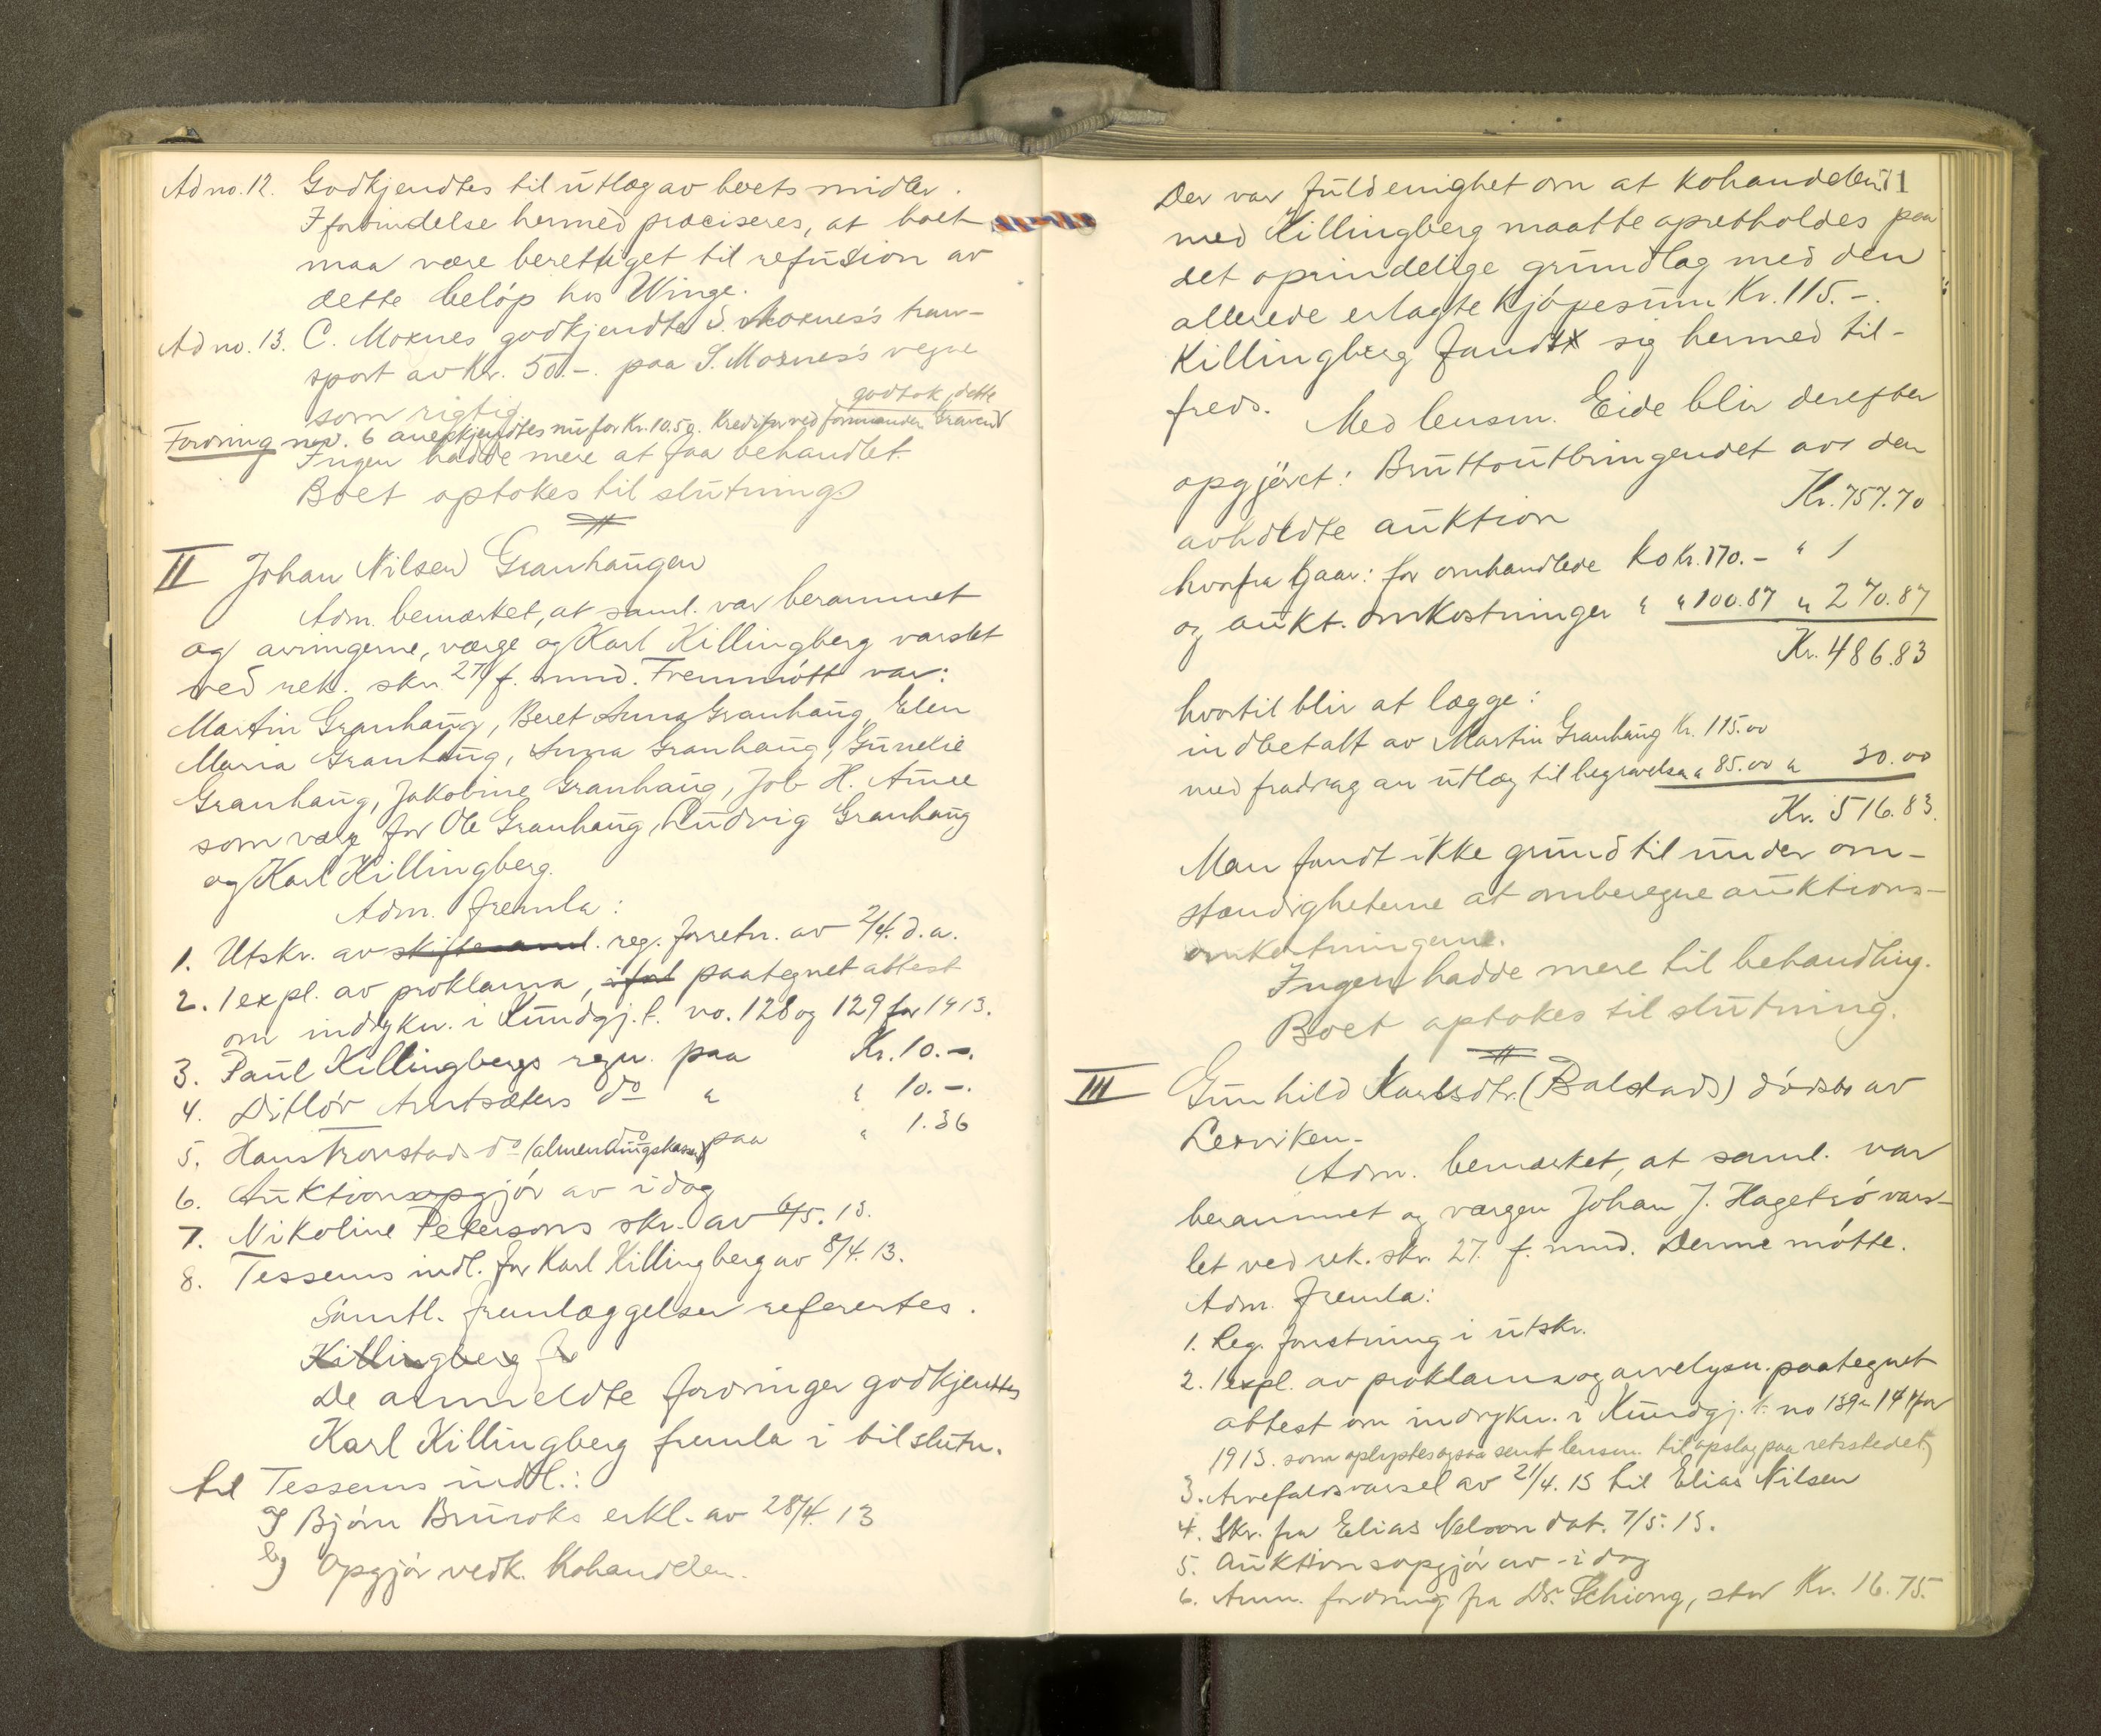 Ad no. 12. Godkjendtes til utlæg av boets midler.
I forbindelse hermed præciseres, at boet
maa være berettiget til refusion av
dette beløp hos Winge.
Ad no. 13. C. Moxnes godkjendte S. Moxnes's tran-
sport av Kr. 50.-. paa S. Moxnes's vegne
som rigtig
godtok dette
Fordring nr. 6 anerkjendtes nu for Kr. 10.50. Kreditor ved formanden
Ingen hadde mere at faa behandlet.
Boet optokes til slutning
II Johan Nilsen Granhaugen
Adm. bemærket, at saml. var berammet
og arvingerne, værge og Karl Killingberg varslet
ved rek. skr. 27/ f. mnd. Fremmøtt var:
Martin Granhaug, Beret Anna Granhaug, Elen
Maria Granhaug, Anna Granhaug, Gunelie
Granhaug, Jakobine Granhaug, Job H. Aunee
som værge for Ole Granhaug, Ludvig Granhaug
og Karl Killingberg.
Adm. fremla:
1. Utskr. av skiftesaml. reg. forretn. av 2/4. d.a.
2. 1 expl. av proklama, paategnet attest
om indrykn. i Kundgj.t. no. 128 og 129 for 1913.
3. Paul Killingbergs regn. paa Kr. 10.-.
4. Ditløv Arntsæters do " " 10.-.
5. Hans Tronstads do (almenningskassen) paa " 1.36
6. Auktionsopgjør av idag
7. Nikoline Petersons skr. av 6/5. 13.
8. Tessems indl. for Karl Killingberg av 8/4. 13.
Samtl. fremlæggelser referertes.
Killingberg fr
De anmeldte fordringer godkjendtes
Karl Killingberg fremla i tilslutn.
til Tessems indl.:
a) Bjørn Bruroks erkl. av 28/4. 13
b) Opgjør vedk. Kohandelen.
Der var fuld enighet om at kohandelen 71
med Killingberg maatte opretholdes paa
det oprindelige grundlag med den
allerede erlagte kjøpesum Kr. 115.-.
Killingberg fandt sig hermed til-
freds.
Med lensm. Eide blir derefter
opgjøret: Bruttoutbringendet av den
avholdte auktion Kr. 757.70
hvorfra gaar: for omhandlede ko Kr. 170.- "
og aukt. omkostninger " " 100.87 " 270.87
Kr. 486.83
hvortil blir at lægge:
indbetalt av Martin Granhaug Kr. 115.00
med fradrag av utlæg til begravelse " 85.00 " 30.00
Kr. 516.83.
Man fandt ikke grund til under om-
stændigheterne at omberegne auktions-
omkostningerne.
Ingen hadde mere til behandling.
Boet optokes til slutning.
III Gunhild Karlsdtr. (Balstads) dødsbo av
Lexviken.
Adm. bemærket, at saml. var
berammet og værgen Johan J. Hagetrø vars-
let ved rek. skr. 27. f. mnd. Denne møtte.
Adm. fremla:
1. Reg. forretning i utskr.
2. 1 expl. av proklama og arvelysn. paategnet
attest om indrykn. i Kundgj.t. no 139 " 144 for
1913. som oplystes ogsaa sendt lensm. til opslag paa retsstedet
3. Arvefaldsvarsel av 21/4. 13 til Elias Nilsen
4. Skr. fra Elias Nelson dat. 7/5. 13.
5. Auktionsopgjør av idag
6. Anm. fordring fra Dr. Schiong, stor Kr. 16.75.